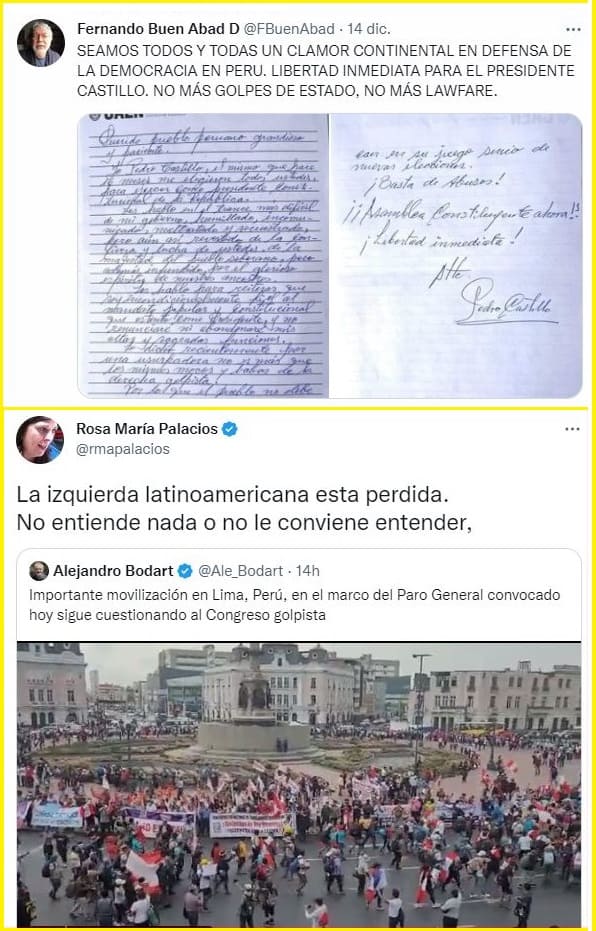 Fernando Buen Abad D @FBuenAbad · 14 dic.
SEAMOS TODOS Y TODAS UN CLAMOR CONTINENTAL EN DEFENSA DE
LA DEMOCRACIA EN PERU. LIBERTAD INMEDIATA PARA EL PRESIDENTE
CASTILLO. NO MÁS GOLPES DE ESTADO, NO MÁS LAWFARE.
Querido pueblo peruano grandioso
y paciente.
Yo Pedro Castillo, el mismo que hace
16 meses me eligieron todos ustedes,
para ejercer como presidente Consti-
tucional de la República.
Les hablo en el trance más difícil
de mi gobierno, humillado, incomu-
nicado, maltratado y secuestrado,
pero aún así revestido de la con-
fianza y lucha de ustedes, de la
majestad del pueblo soberano, pero
además infundido por el glorioso
espíritu de nuestros ancestros.
Les hablo para reiterar que
soy incondicionalmente fiel al
mandato popular y constitucional
que ostento como presidente, y no
renunciaré ni abandonaré mis
altas y sagradas funciones.
Lo dicho recientemente por
una usurpadora no es más que
los mismos mocos y babas de la
derecha golpista.
Por lo que el pueblo no debe
caer en su juego sucio de
nuevas elecciones.
¡Basta de Abusos!
¡¡Asamblea Constituyente ahora!!
¡Libertad inmediata!
Atte
Pedro Castillo
Rosa María Palacios
@rmapalacios
La izquierda latinoamericana esta perdida.
No entiende nada o no le conviene entender,
Alejandro Bodart @Ale_Bodart · 14h
Importante movilización en Lima, Perú, en el marco del Paro General convocado
hoy sigue cuestionando al Congreso golpista